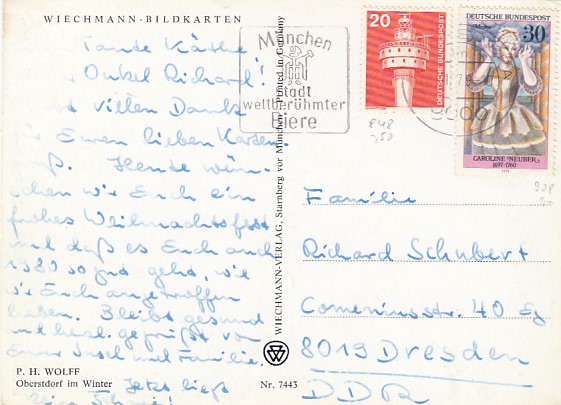 WIECHMANN-BILDKARTEN
Tante Käthe
Onkel Richard!
vielen Dank
Euren lieben Karten
Heute wün-
schen wir Euch ein
frohes Weihnachtsfest
und daß es Euch auch
1980 so gut geht, wie
wir Euch angetroffen
haben. Bleibt gesund
und herzl. gegrüßt von
und Familie.
Jetzt
P. H. WOLFF
Oberstdorf im Winter
Nr. 7443
WIECHMANN-VERLAG, Starnberg vor München · Printed in Germany
München
Stadt
weltberühmter
Tiere
20
DEUTSCHE BUNDESPOST
DEUTSCHE BUNDESPOST
30
CAROLINE NEUBER
1697-1760
Familie
Richard Schubert
Comeniusstr. 40
8019 Dresden
DDR